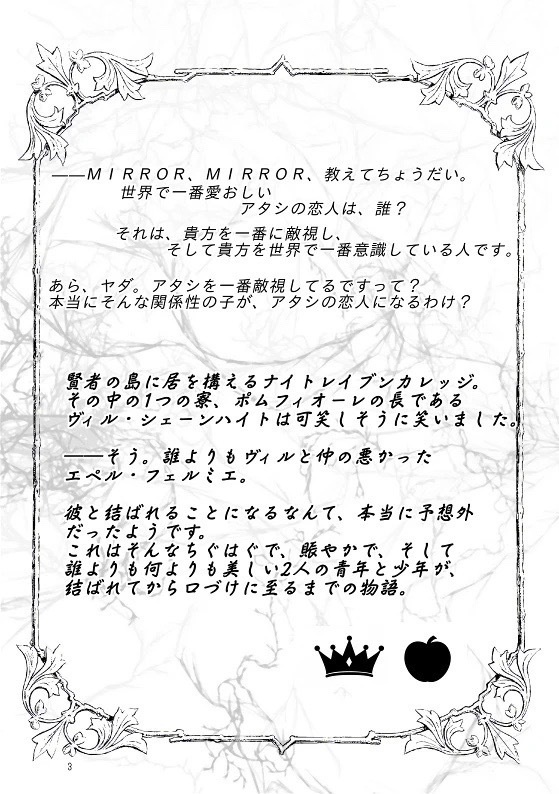 ――ＭＩＲＲＯＲ、ＭＩＲＲＯＲ、教えてちょうだい。
世界で一番愛おしい
アタシの恋人は、誰？
それは、貴方を一番に敵視し、
そして貴方を世界で一番意識している人です。
あら、ヤダ。アタシを一番敵視してるですって？
本当にそんな関係性の子が、アタシの恋人になるわけ？
賢者の島に居を構えるナイトレイブンカレッジ。
その中の1つの寮、ポムフィオーレの長である
ヴィル・シェーンハイトは可笑しそうに笑いました。
――そう。誰よりもヴィルと仲の悪かった
エペル・フェルミエ。
彼と結ばれることになるなんて、本当に予想外
だったようです。
これはそんなちぐはぐで、賑やかで、そして
誰よりも何よりも美しい2人の青年と少年が、
結ばれてから口づけに至るまでの物語。
3